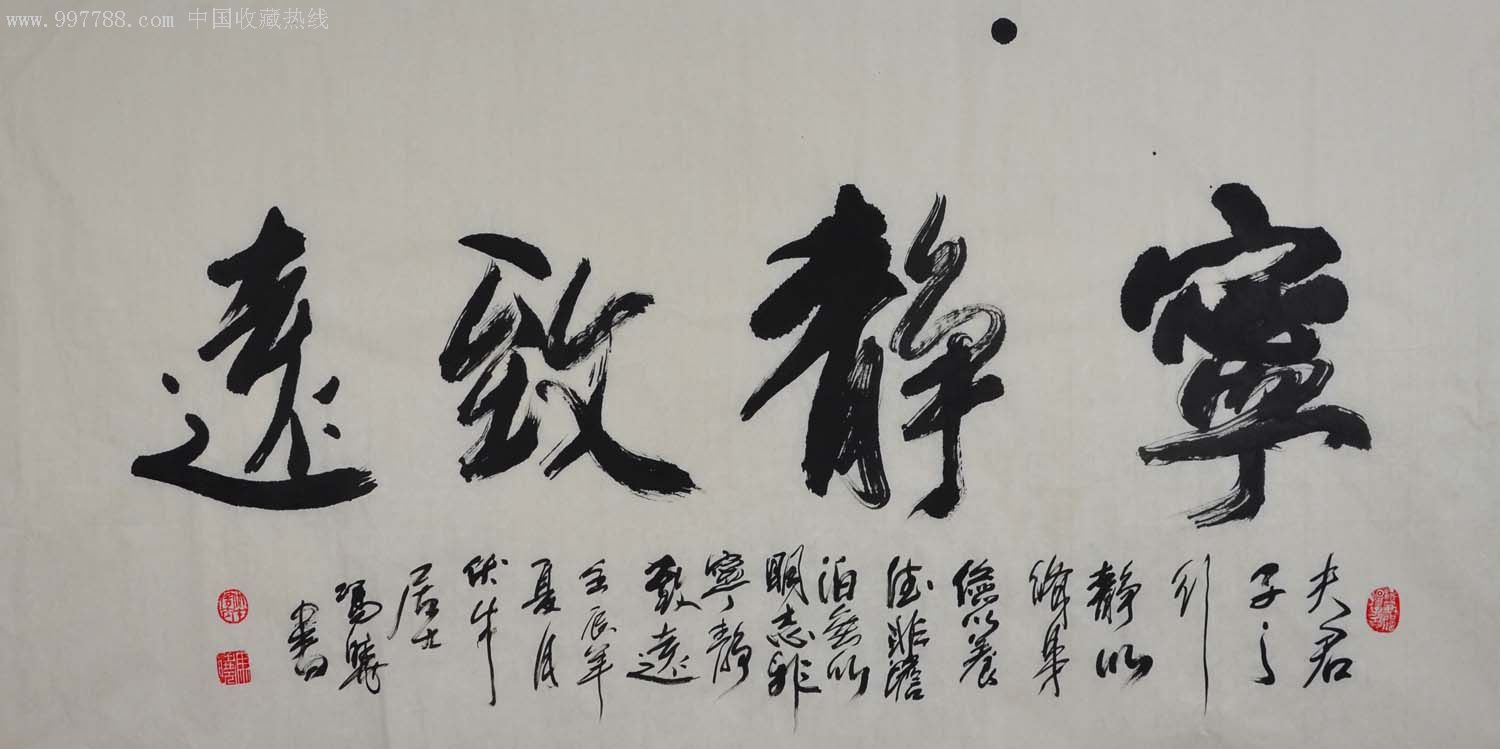 www.997788.com 中国收藏热线
寧靜致遠
夫君
子之
行
静以
修身
儉以養
德非澹
泊無以
明志非
寧静
致遠
壬辰年
夏月
伏牛
居士
馮曉
書